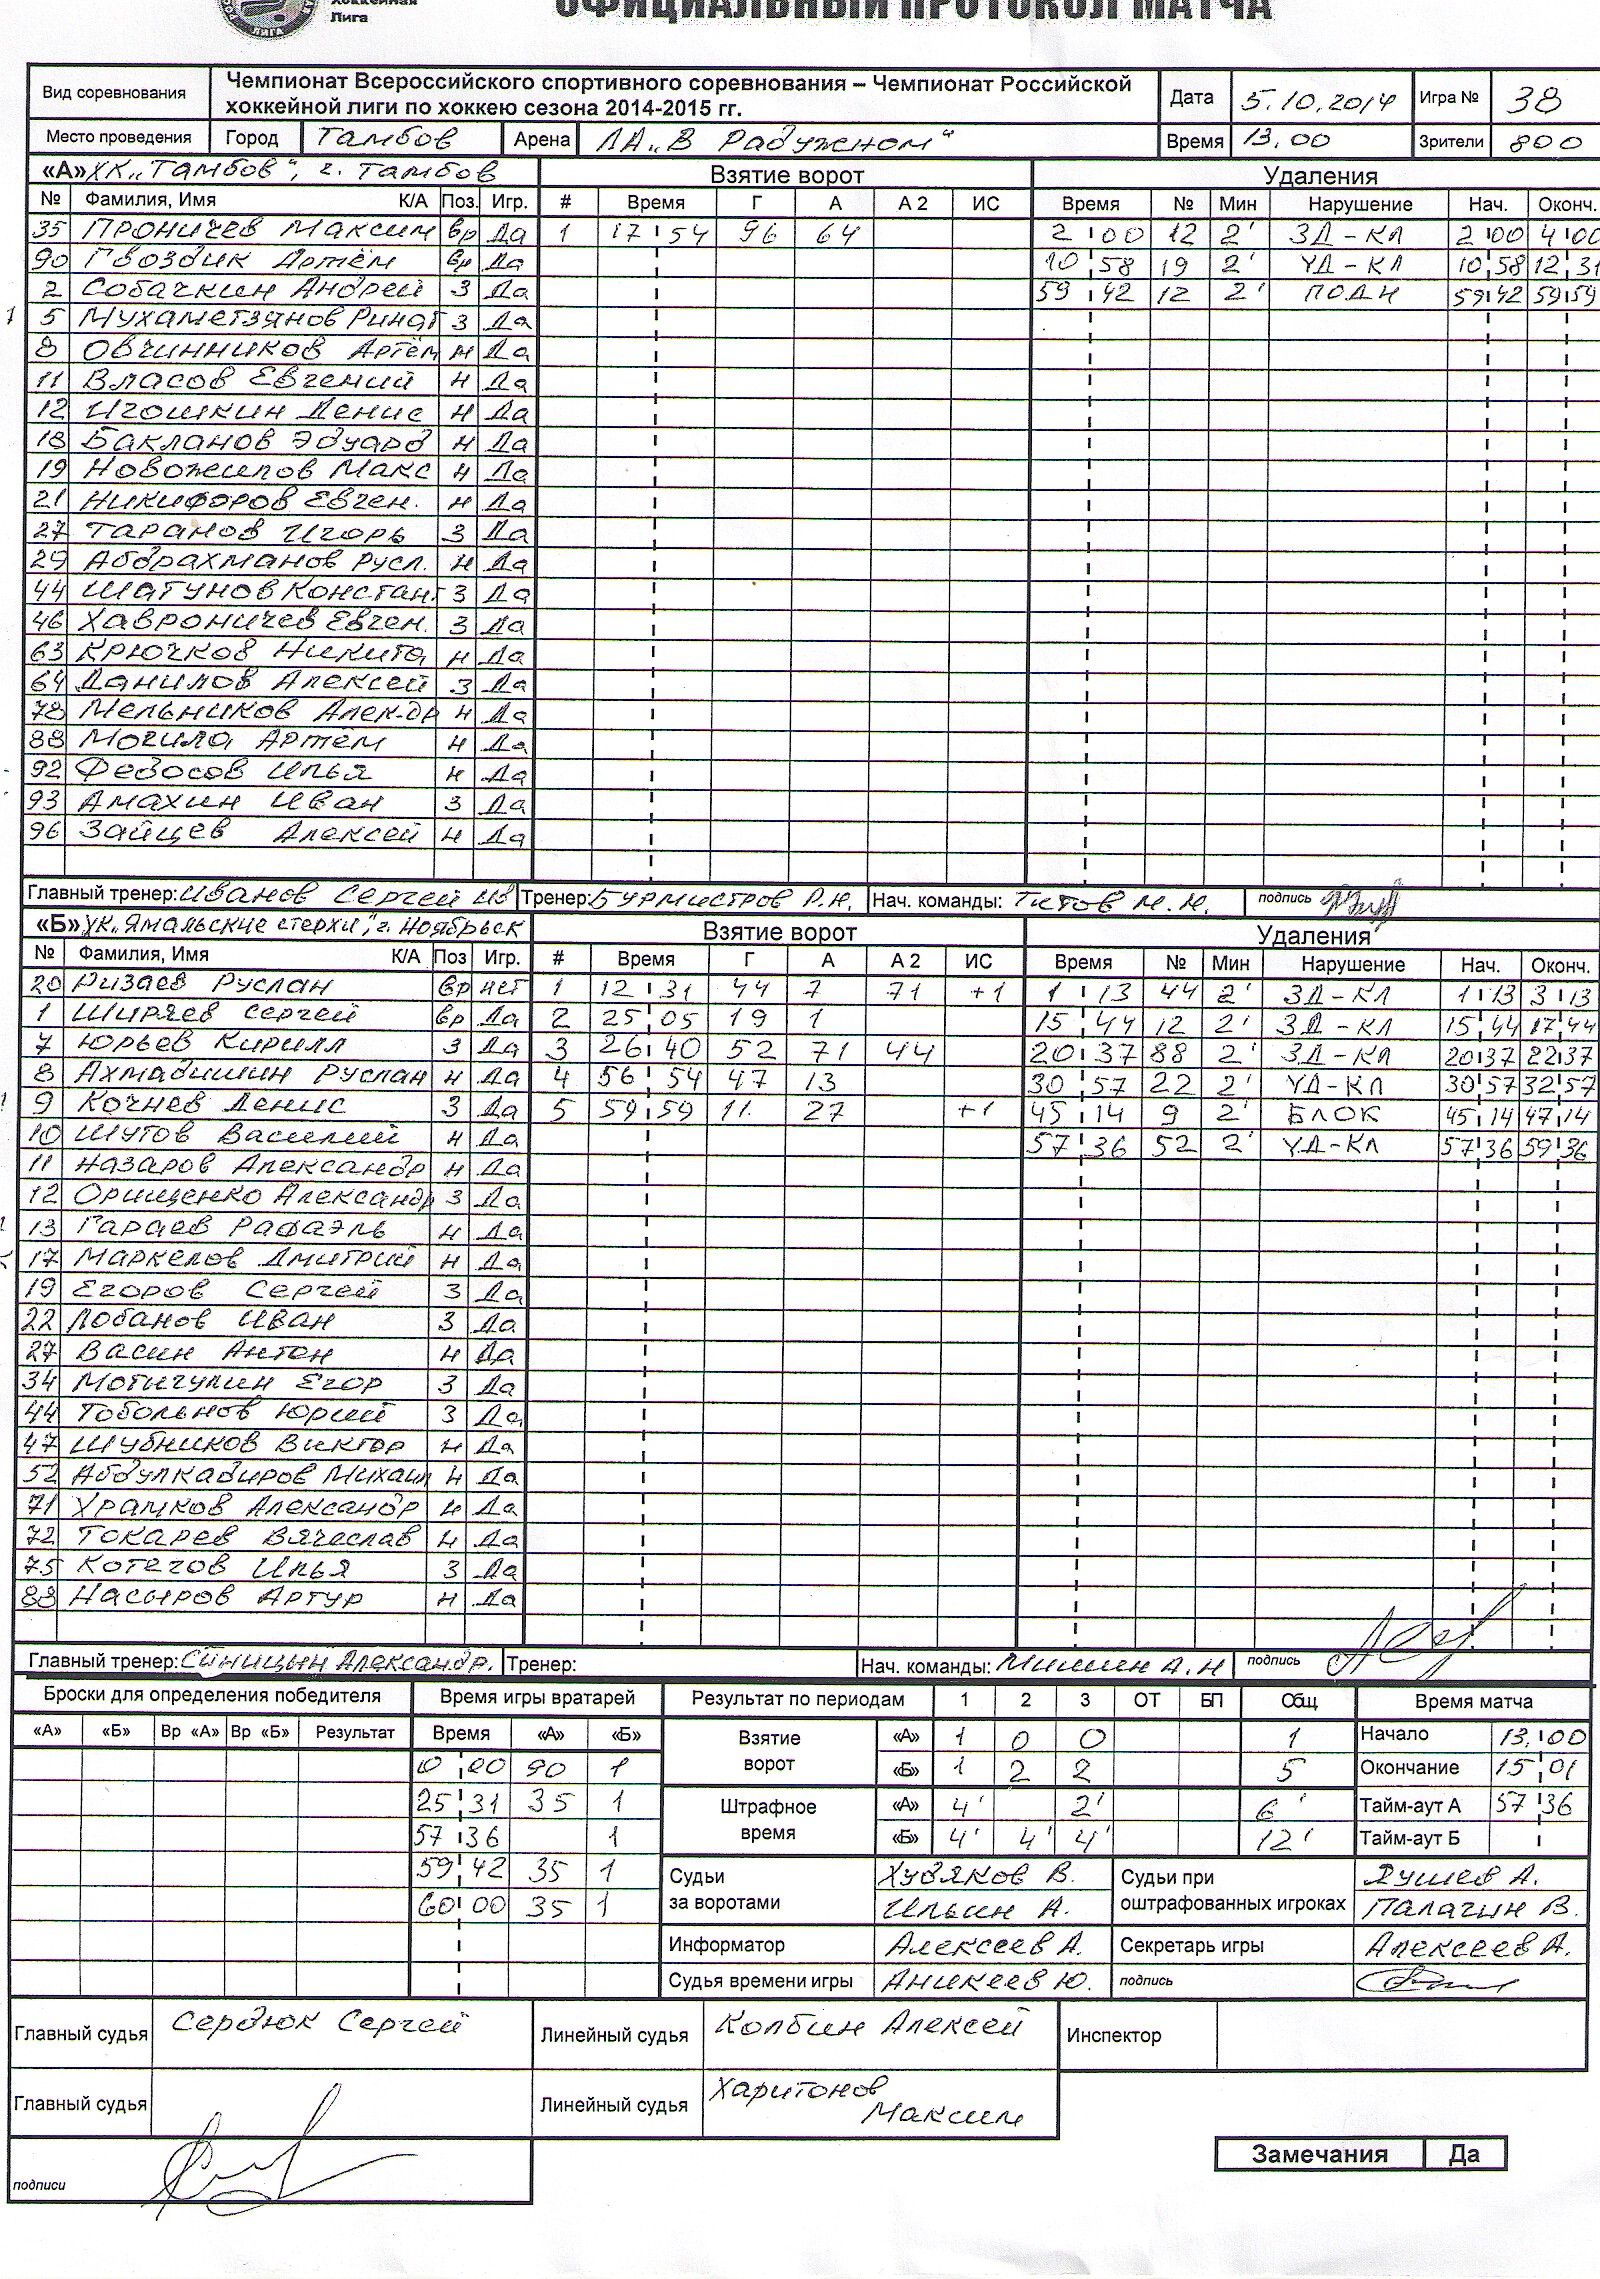 Хоккейная
Лига
ОФИЦИАЛЬНЫЙ ПРОТОКОЛ МАТЧА
Вид соревнования Чемпионат Всероссийского спортивного соревнования – Чемпионат Российской хоккейной лиги по хоккею сезона 2014-2015 гг. Дата 5.10.2014 Игра № 38
Место проведения Город Тамбов Арена ЛА „В Радужном“ Время 13.00 Зрители 800
«А» ХК „Тамбов“, г. Тамбов Взятие ворот Удаления
№ Фамилия, Имя К/А Поз. Игр. # Время Г А А 2 ИС Время № Мин Нарушение Нач. Оконч.
35 Проничев Максим вр Да 1 17 54 96 64 2 00 12 2' ЗД-КЛ 2 00 4 00
90 Гвоздик Артём вр Да 10 58 19 2' УД-КЛ 10 58 12 31
2 Собачкин Андрей З Да 59 42 12 2' ПОДН 59 42 59 59
5 Мухаметзянов Ринат З Да
8 Овчинников Артём Н Да
11 Власов Евгений Н Да
12 Игошкин Денис Н Да
18 Бакланов Эдуард Н Да
19 Новожилов Макс Н Да
21 Никифоров Евген. Н Да
27 Таранов Игорь З Да
29 Абдрахманов Русл. Н Да
44 Шатунов Констант З Да
46 Хавроничев Евген. З Да
63 Крючков Никита Н Да
64 Данилов Алексей З Да
78 Мельников Алек-др Н Да
88 Могила Артём Н Да
92 Федосов Илья Н Да
93 Амахин Иван З Да
96 Зайцев Алексей Н Да
Главный тренер: Иванов Сергей Ив Тренер: Бурмистров Р.Н. Нач. команды: Титов М.Н. подпись
«Б» ХК „Ямальские стерхи“, г. Ноябрьск Взятие ворот Удаления
№ Фамилия, Имя К/А Поз Игр. # Время Г А А 2 ИС Время № Мин Нарушение Нач. Оконч.
20 Ризаев Руслан вр нет 1 12 31 44 7 71 +1 1 13 44 2' ЗД-КЛ 1 13 3 13
1 Ширяев Сергей вр Да 2 25 05 19 1 15 44 12 2' ЗД-КЛ 15 44 17 44
7 Юрьев Кирилл З Да 3 26 40 52 71 44 20 37 88 2' ЗД-КЛ 20 37 22 37
8 Ахмадишин Руслан Н Да 4 56 54 47 13 30 57 22 2' УД-КЛ 30 57 32 57
9 Кочнев Денис З Да 5 59 59 11. 27 +1 45 14 9 2' БЛОК 45 14 47 14
10 Шутов Василий Н Да 57 36 52 2' УД-КЛ 57 36 59 36
11 Назаров Александр Н Да
12 Орищенко Александр З Да
13 Гараев Рафаэль Н Да
17 Маркелов Дмитрий Н Да
19 Егоров Сергей З Да
22 Лобанов Иван З Да
27 Васин Антон Н Да
34 Мотигулин Егор З Да
44 Тобольнов Юрий З Да
47 Шубников Виктор Н Да
52 Абдулкадиров Михаил Н Да
71 Храмков Александр Н Да
72 Токарев Вячеслав Н Да
75 Котегов Илья З Да
88 Насыров Артур Н Да
Главный тренер: Синицын Александр. Тренер: Нач. команды: Мишин А.Н подпись
Броски для определения победителя Время игры вратарей Результат по периодам 1 2 3 ОТ БП Общ Время матча
«А» «Б» Вр «А» Вр «Б» Результат Время «А» «Б» Взятие ворот «А» 1 0 0 1 Начало 13.00
0 00 90 1 «Б» 1 2 2 5 Окончание 15 01
25 31 35 1 Штрафное время «А» 4' 2' 6' Тайм-аут А 57 36
57 36 1 «Б» 4' 4' 4' 12' Тайм-аут Б
59 42 35 1 Судьи за воротами Худяков В. Судьи при оштрафованных игроках Душев А.
60 00 35 1 Ильин А. Палагин В.
Информатор Алексеев А. Секретарь игры Алексеев А.
Судья времени игры Аникеев Ю. подпись
Главный судья Сердюк Сергей Линейный судья Колбин Алексей Инспектор
Главный судья Линейный судья Харитонов Максим
Замечания Да
подписи